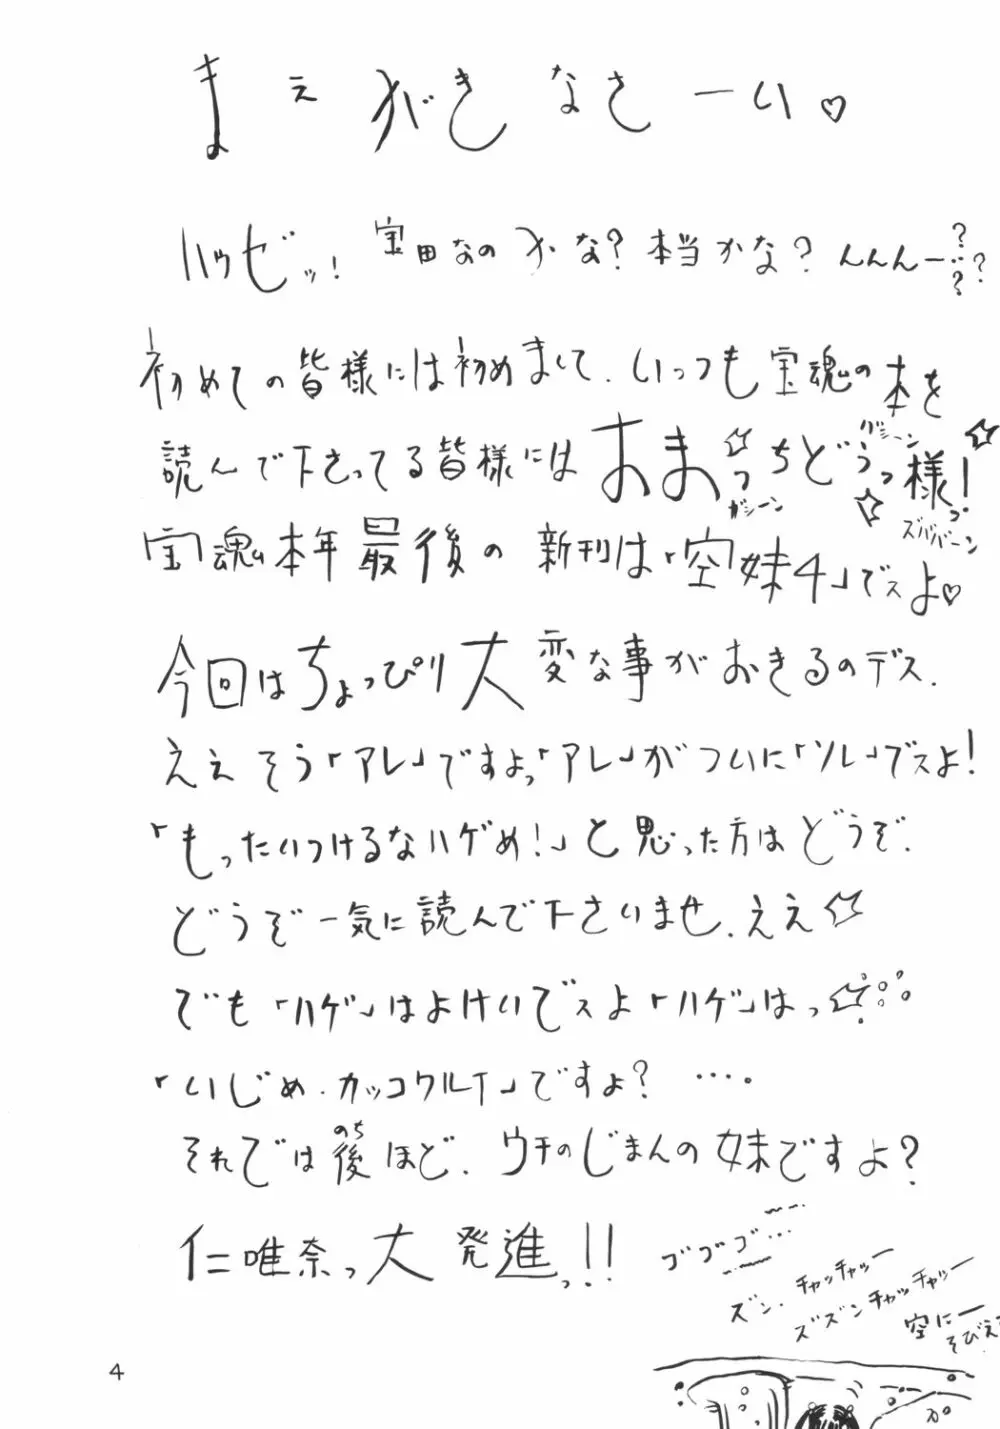 まえがきなさーい♡
ハゥゼッ! 宝田なのかな?本当かな?んんんー…???
初めての皆様には初めまして.いっつも宝魂の本を
読んで下さってる皆様にはおまっちどうっ様っ!
ガシーン
ガシーン
ズババーン
宝魂本年最後の新刊は「空妹4」でスよ♡
今回はちょっぴり大変な事がおきるのデス.
ええそう「アレ」ですよっ「アレ」がついに「ソレ」でスよ!
「もったいつけるなハゲめ!」と思った方はどうぞ.
どうぞ一気に読んで下さいませ.ええ☆
でも「ハゲ」はよけいでスよ「ハゲ」はっ☆
「いじめ.カッコワルイ」ですよ?….
それでは後ほど.ウチのじまんの妹ですよ?
のち
仁唯奈っ大発進っ!!
ゴゴゴゴ…
ズン.チャッチャッー
ズズンチャッチャッー
空にー
そびえ
4